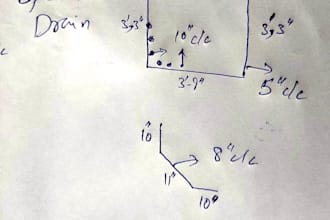 Drain
3'-3"
10" c/c
3'-3"
3'-9"
5" c/c
10"
8" c/c
11"
10"